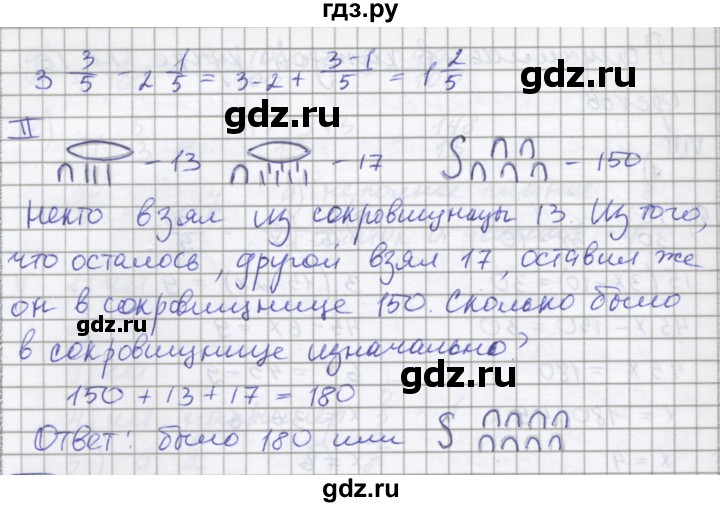 гдз.ру
3 3/5 - 2 1/5 = 3-2 + 3-1/5 = 1 2/5
gdz.ru
II
∩||| - 13 ∩||||||| - 17 ∩∩∩∩∩ - 150
Некто взял из сокровищницы 13. Из того,
что осталось, другой взял 17, оставил же
он в сокровищнице 150. Сколько было
в сокровищнице изначально?
150 + 13 + 17 = 180
Ответ: было 180 или ∩∩∩∩∩∩∩∩
gdz.ru
gdz.ru
gdz.ru
gdz.ru
gdz.ru
gdz.ru
gdz.ru
gdz.ru